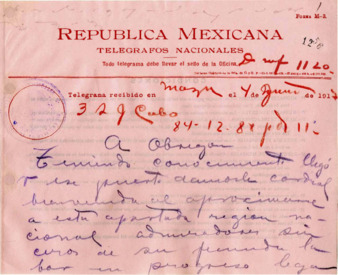 FORMA M-2.
REPUBLICA MEXICANA
TELEGRAFOS NACIONALES
Todo telegrama debe llevar el sello de la Oficina.
11 20
Telegrama recibido en el 4 191
3 2 J Cabo
84-12-84 pd 11
A Obregon
Teniendo conocimiento llegó
puerto damosle cordial
bienvenida al aproximarse
a esta apartada region na-
cional admiradores sin
ceros de su fecunda la
bor en progreso